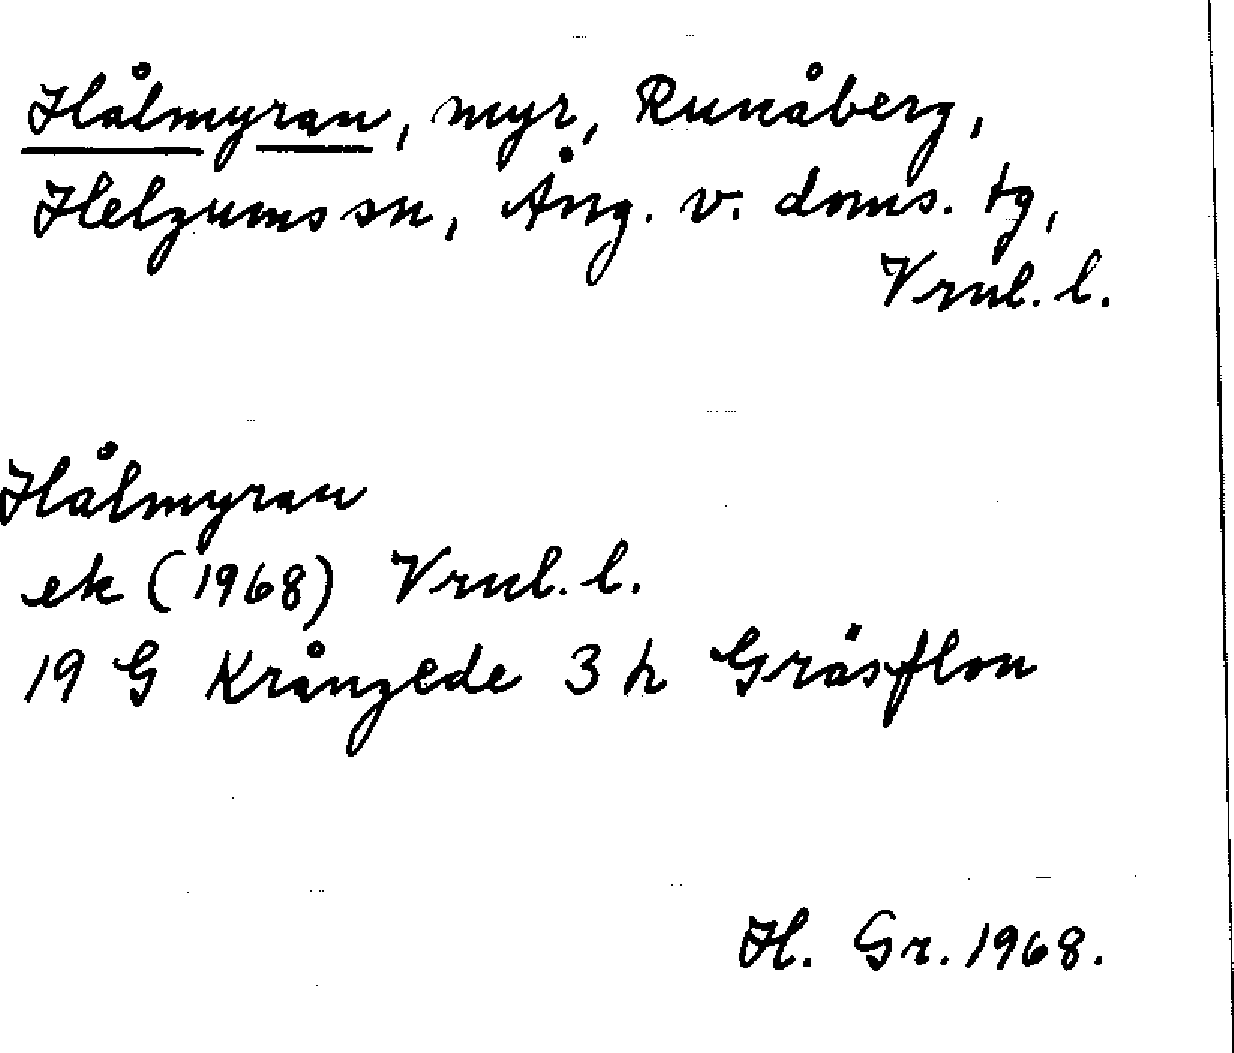 Hålmyran, myr, Runåberg,
Helgums sn, Ång. v. doms. tg,
Vrnl. l.
Hålmyran
ek (1968) Vrnl. l.
19 G Krångede 3 h Gräsflon
H. Gr. 1968.